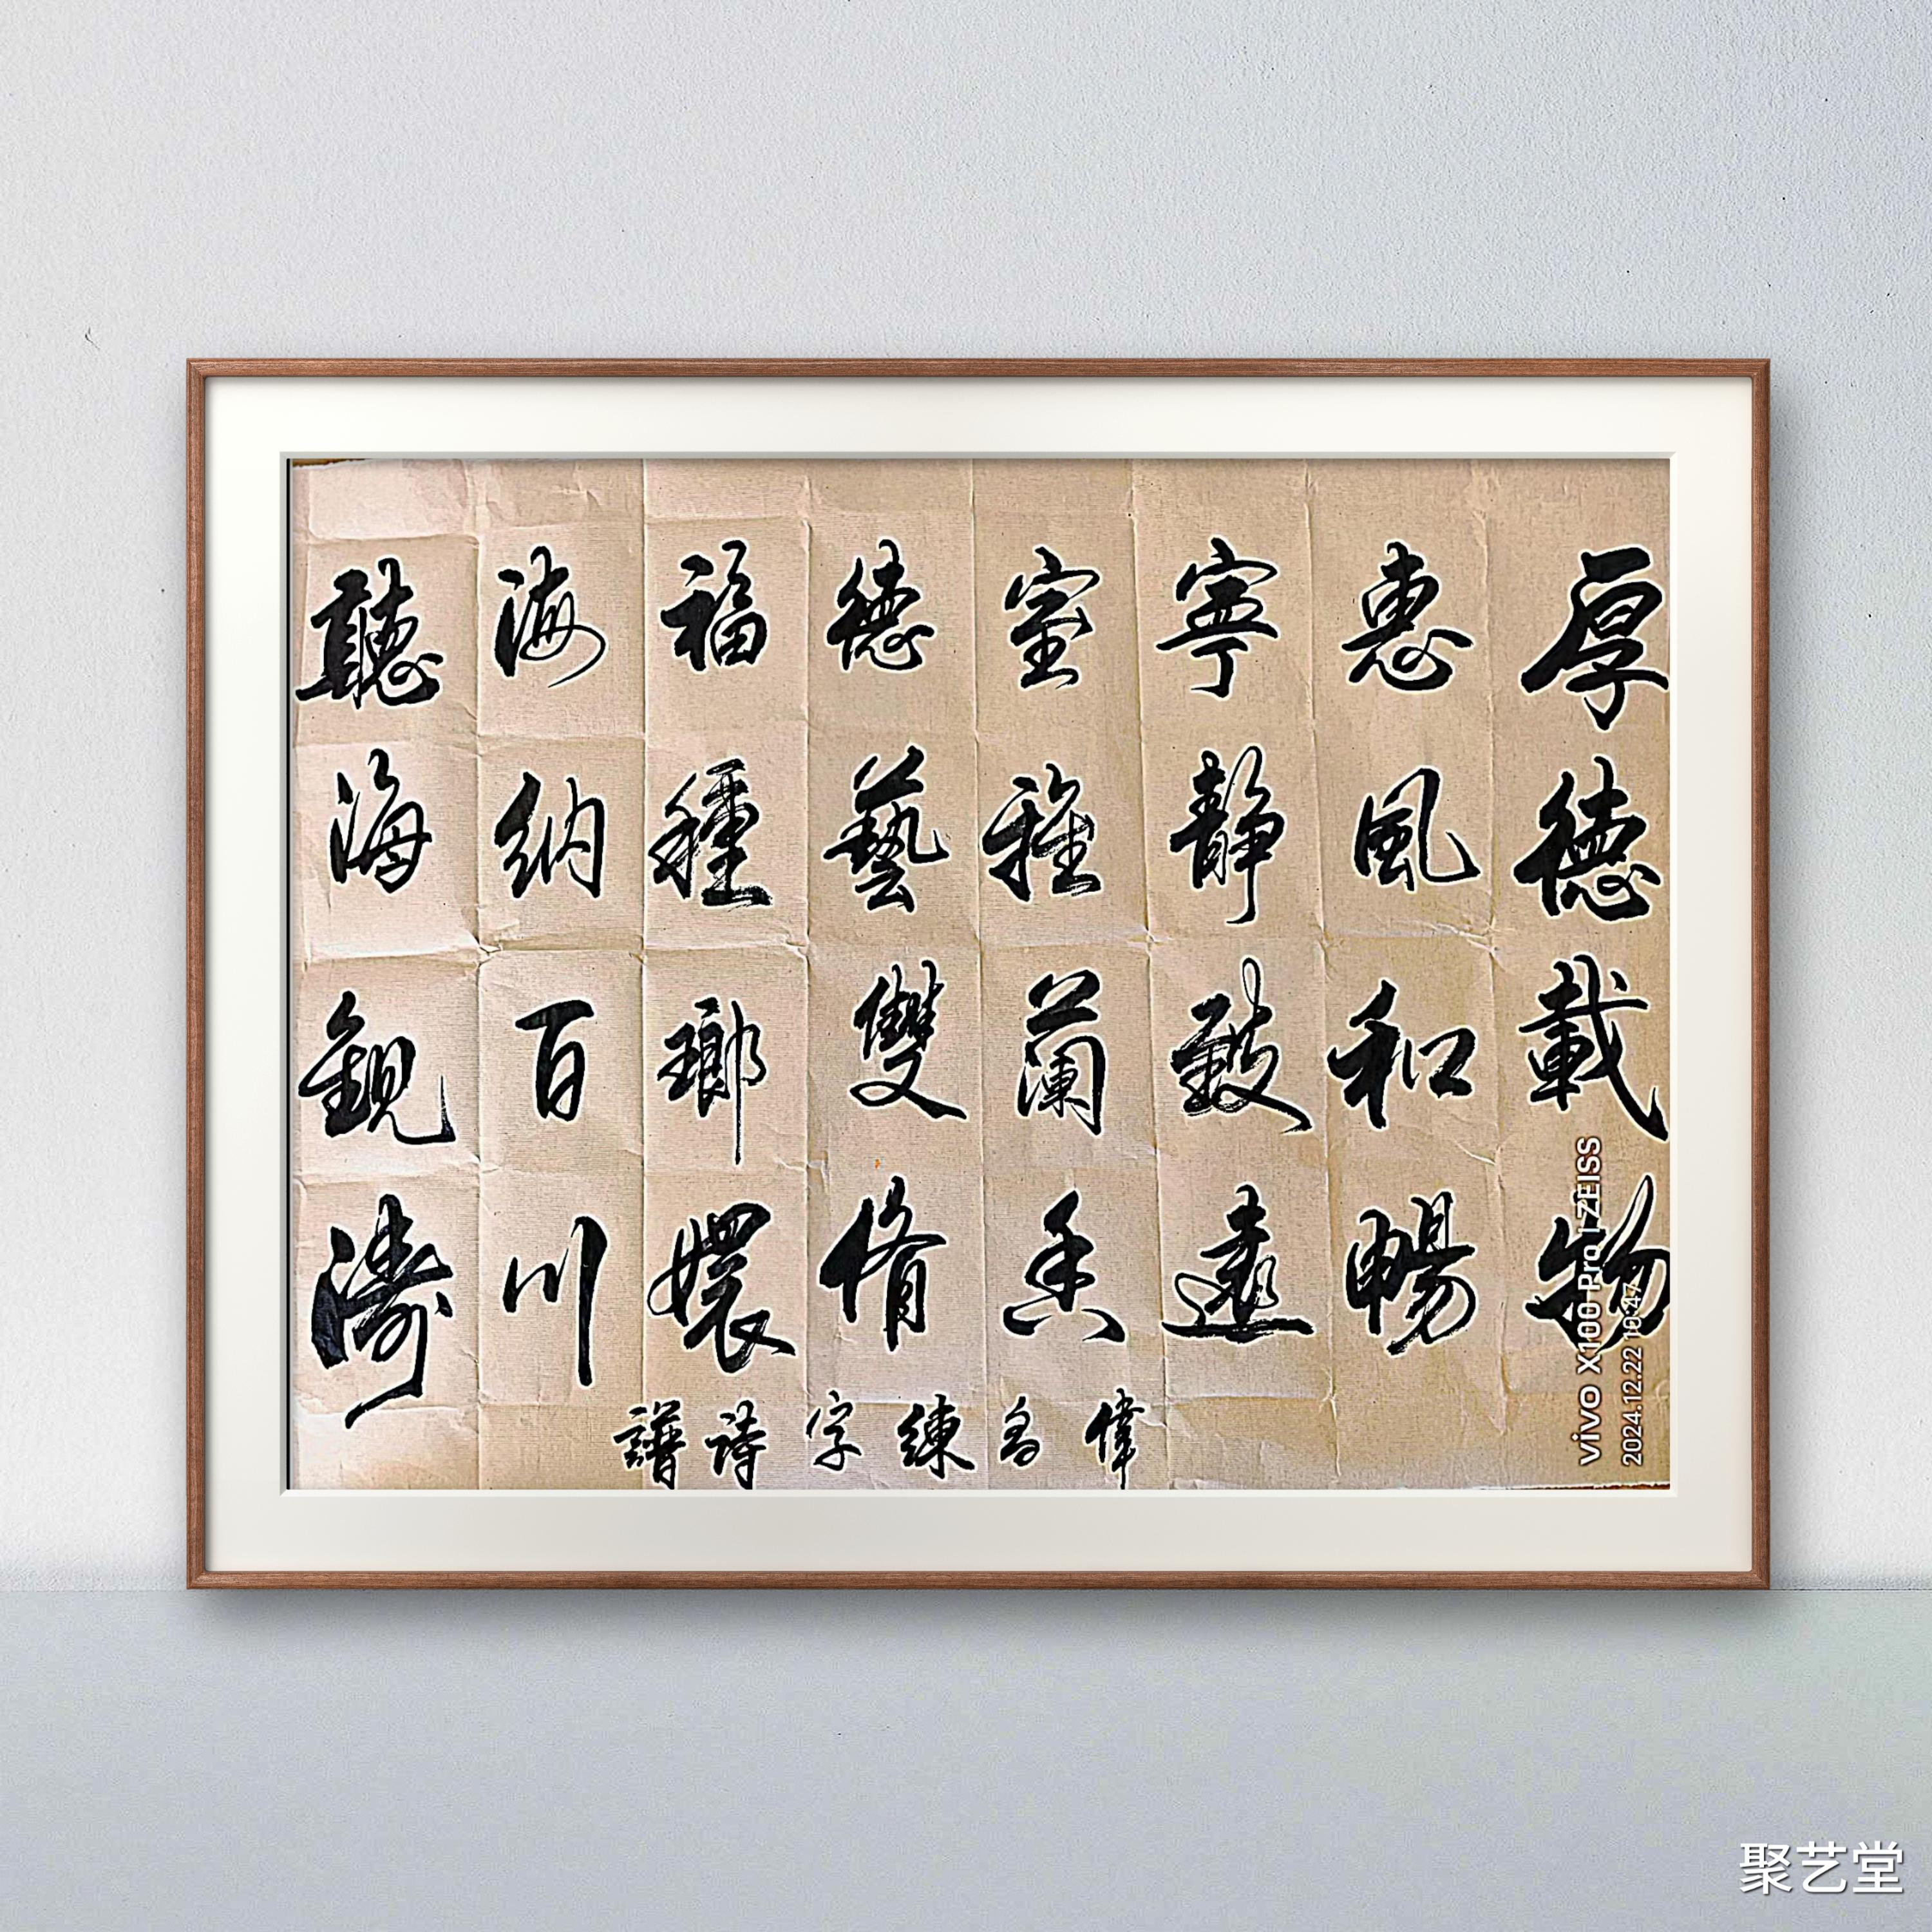 厚德載物
惠風和暢
寧靜致遠
室雅蘭香
德藝雙脩
福種瑯嬛
海納百川
聽海觀濤
偉 練字詩譜
vivo X100 Pro | ZEISS
2024.12.22 10:47
聚艺堂